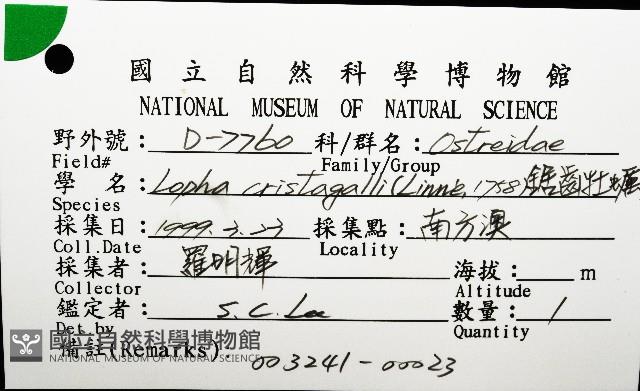 國立自然科學博物館
NATIONAL MUSEUM OF NATURAL SCIENCE
野外號: D-7760 科/群名: Ostreidae
Field# Family/Group
學 名: Lopha cristagalli (Linné, 1758) 鋸齒牡蠣
Species
採集日: 1999.3.23 採集點: 南方澳
Coll.Date Locality
採集者: 羅明輝 海拔: m
Collector Altitude
鑑定者: S.C. Lee 數量: 1
Det.by Quantity
備註(Remarks). 003241-00023
國立自然科學博物館
NATIONAL MUSEUM OF NATURAL SCIENCE